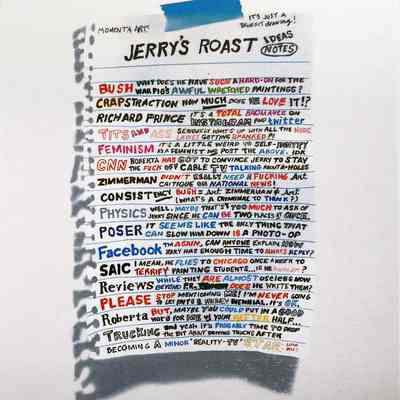 MOMENTA ART
IT'S JUST A
PROJECT drawing!
JERRY'S ROAST IDEAS
NOTES
BUSH WHY DOES HE HAVE SUCH A HARD-ON FOR THE
WAR PIG'S AWFUL WRETCHED PAINTINGS?
CRAPSTRACTION HOW MUCH DOES HE LOVE IT!?
RICHARD PRINCE IT'S A TOTAL BROMANCE ON
INSTAGRAM AND twitter
TITS AND ASS SERIOUSLY WHAT'S UP WITH ALL THE NUDE
LADIES GETTING SPANKED?!
FEMINISM IT'S A LITTLE WEIRD TO SELF-IDENTIFY
AS A FEMINIST AND POST THE ABOVE. IDK
CNN ROBERTA HAS GOT TO CONVINCE JERRY TO STAY
THE FUCK OFF CABLE TV TALKING ABOUT A-HOLES
ZIMMERMAN DIDN'T REALLY NEED A FUCKING ART
CRITIQUE ON NATIONAL NEWS!
CONSISTENCY BUSH'S ART ZIMMERMAN'S ART
(WHAT'S A CRIMINAL TO THINK?)
PHYSICS WELL, MAYBE THAT'S TOO MUCH TO ASK OF
JERRY SINCE HE CAN BE TWO PLACES AT ONCE.
POSER IT SEEMS LIKE THE ONLY THING THAT
CAN SLOW HIM DOWN IS A PHOTO-OP
Facebook THEN AGAIN, CAN ANYONE EXPLAIN HOW
JERRY HAS ENOUGH TIME TO ALWAYS REPLY?
SAIC I MEAN, HE FLIES TO CHICAGO ONCE A WEEK TO
TERRIFY PAINTING STUDENTS... IS HE
Reviews WHILE THEY ARE ALMOST USELESS NOW
BEYOND PR, DOES HE WRITE THEM?
PLEASE STOP MENTIONING ME! I'M NEVER GOING
TO GET INTO A WHITNEY BIENNIAL. IT'S OK.
Roberta BUT, MAYBE YOU COULD PUT IN A GOOD
WORD FOR ME W/ YOUR BETTER HALF...
TRUCKING and yeah IT'S PROBABLY TIME TO DROP
THE BIT ABOUT DRIVING TRUCKS AFTER
BECOMING A MINOR "REALITY-TV" STAR